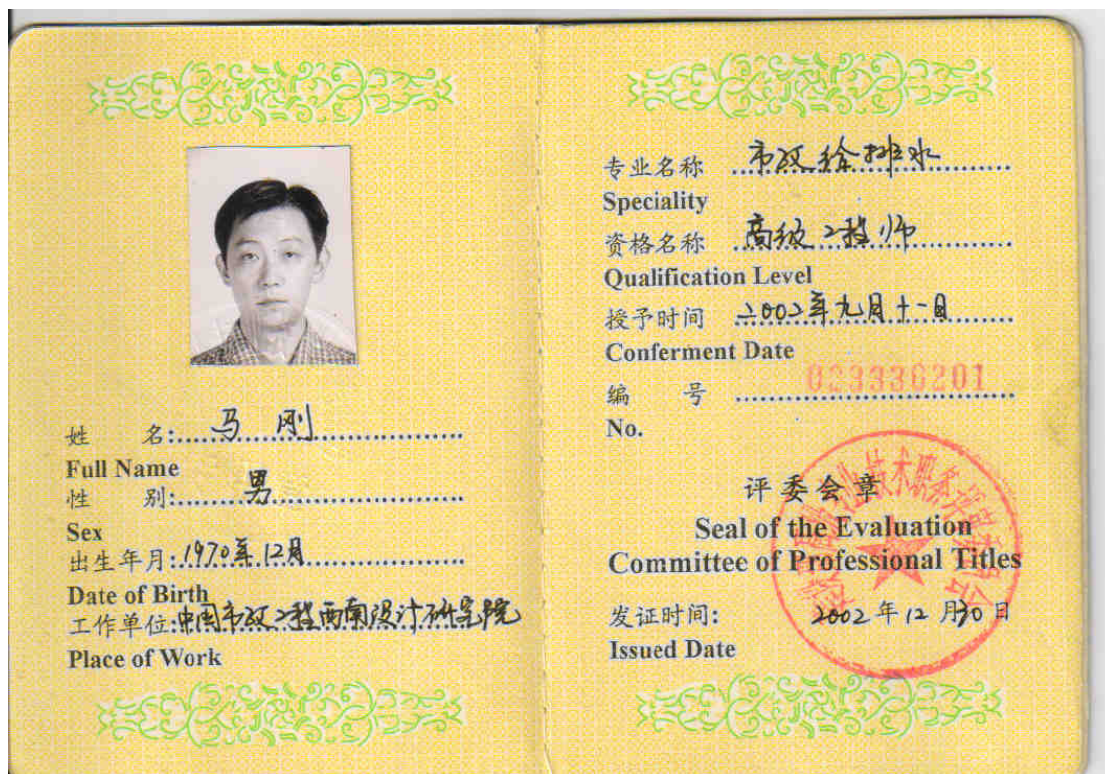 姓 名: 马 刚
Full Name
性 别: 男
Sex
出生年月: 1970年12月
Date of Birth
工作单位: 中国市政工程西南设计研究院
Place of Work
专业名称 市政给排水
Speciality
资格名称 高级工程师
Qualification Level
授予时间 2002年九月十一日
Conferment Date
编 号 023336201
No.
评委会章
Seal of the Evaluation
Committee of Professional Titles
发证时间: 2002年12月30日
Issued Date